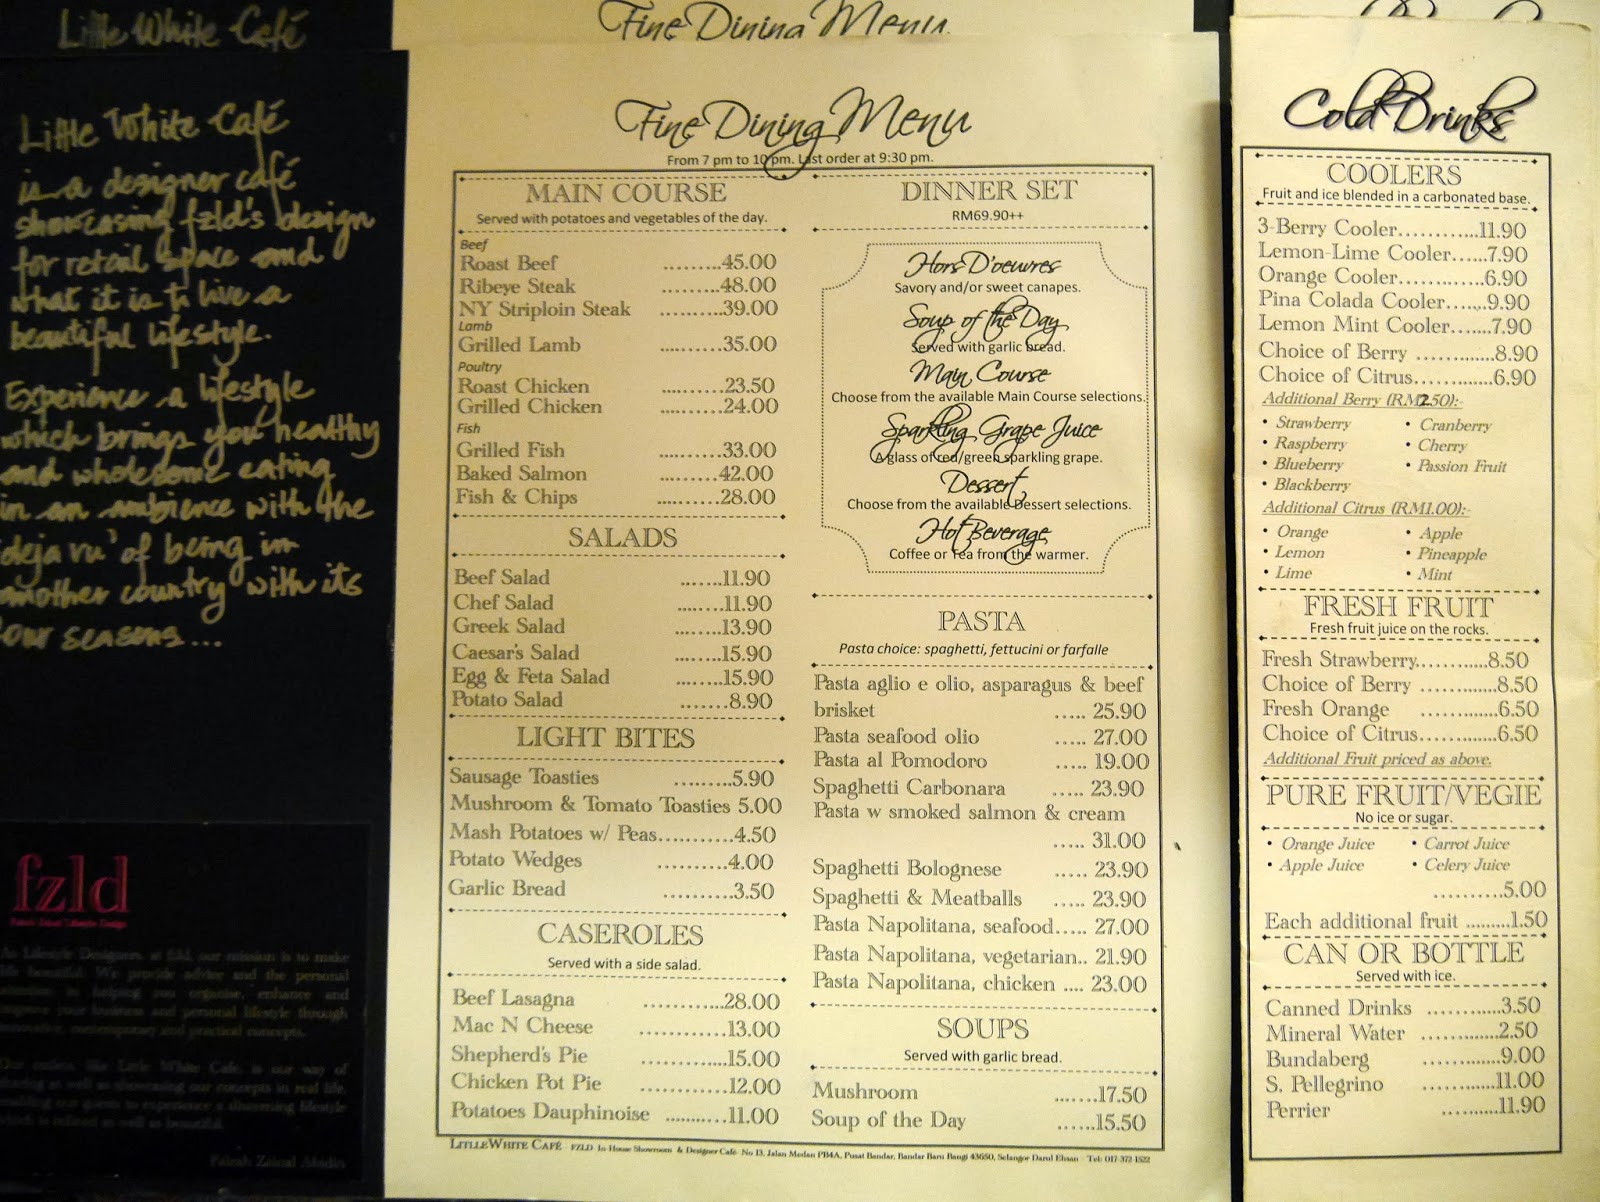 Little White Café
Little White Café
is a designer café
showcasing fzld's design
for retail space and
what it is to live a
beautiful lifestyle.
Experience a lifestyle
which brings you healthy
and wholesome eating
in an ambience with the
'deja vu' of being in
another country with its
our seasons...
fzld
As Lifestyle Designers at fzld, our mission is to make
life beautiful. We provide advice and the personal
in helping you organise, enhance and
improve your business and personal lifestyle through
and practical concepts.
the Little White Café, is our way of
as well as showcasing our concepts in real life,
our guests to experience a lifestyle
which is refined as well as beautiful.
Faizah Zainal Abidin
Fine Dining Menu
Fine Dining Menu
From 7 pm to 10 pm. Last order at 9:30 pm.
MAIN COURSE
Served with potatoes and vegetables of the day.
Beef
Roast Beef .........45.00
Ribeye Steak .........48.00
NY Striploin Steak ..........39.00
Lamb
Grilled Lamb ..........35.00
Poultry
Roast Chicken ..........23.50
Grilled Chicken ..........24.00
Fish
Grilled Fish ..........33.00
Baked Salmon ..........42.00
Fish & Chips ..........28.00
SALADS
Beef Salad .......11.90
Chef Salad .......11.90
Greek Salad .......13.90
Caesar's Salad .......15.90
Egg & Feta Salad .......15.90
Potato Salad .......8.90
LIGHT BITES
Sausage Toasties .........5.90
Mushroom & Tomato Toasties 5.00
Mash Potatoes w/ Peas...........4.50
Potato Wedges ...........4.00
Garlic Bread ..........3.50
CASEROLES
Served with a side salad.
Beef Lasagna ............28.00
Mac N Cheese ............13.00
Shepherd's Pie ............15.00
Chicken Pot Pie ............12.00
Potatoes Dauphinoise ...........11.00
DINNER SET
RM69.90++
Hors D'oeuvres
Savory and/or sweet canapes.
Soup of the Day
Served with garlic bread.
Main Course
Choose from the available Main Course selections.
Sparkling Grape Juice
A glass of red/green sparkling grape.
Dessert
Choose from the available Dessert selections.
Hot Beverage
Coffee or Tea from the warmer.
PASTA
Pasta choice: spaghetti, fettucini or farfalle
Pasta aglio e olio, asparagus & beef
brisket ..... 25.90
Pasta seafood olio ..... 27.00
Pasta al Pomodoro ..... 19.00
Spaghetti Carbonara ..... 23.90
Pasta w smoked salmon & cream
..... 31.00
Spaghetti Bolognese ..... 23.90
Spaghetti & Meatballs ..... 23.90
Pasta Napolitana, seafood..... 27.00
Pasta Napolitana, vegetarian.. 21.90
Pasta Napolitana, chicken .... 23.00
SOUPS
Served with garlic bread.
Mushroom .......17.50
Soup of the Day ......15.50
LITLLEWHITE CAFÉ FZLD In House Showroom & Designer Café No 13, Jalan Medan PB4A, Pusat Bandar, Bandar Baru Bangi 43650, Selangor Darul Ehsan Tel: 017 372 1522
Cold Drinks
COOLERS
Fruit and ice blended in a carbonated base.
3-Berry Cooler............11.90
Lemon-Lime Cooler......7.90
Orange Cooler............6.90
Pina Colada Cooler.......9.90
Lemon Mint Cooler.......7.90
Choice of Berry .............8.90
Choice of Citrus.............6.90
Additional Berry (RM2.50):-
• Strawberry • Cranberry
• Raspberry • Cherry
• Blueberry • Passion Fruit
• Blackberry
Additional Citrus (RM1.00):-
• Orange • Apple
• Lemon • Pineapple
• Lime • Mint
FRESH FRUIT
Fresh fruit juice on the rocks.
Fresh Strawberry............8.50
Choice of Berry .............8.50
Fresh Orange .............6.50
Choice of Citrus.............6.50
Additional Fruit priced as above.
PURE FRUIT/VEGIE
No ice or sugar.
• Orange Juice • Carrot Juice
• Apple Juice • Celery Juice
...........5.00
Each additional fruit .........1.50
CAN OR BOTTLE
Served with ice.
Canned Drinks ............3.50
Mineral Water .............2.50
Bundaberg .............9.00
S. Pellegrino ............11.00
Perrier ..........11.90